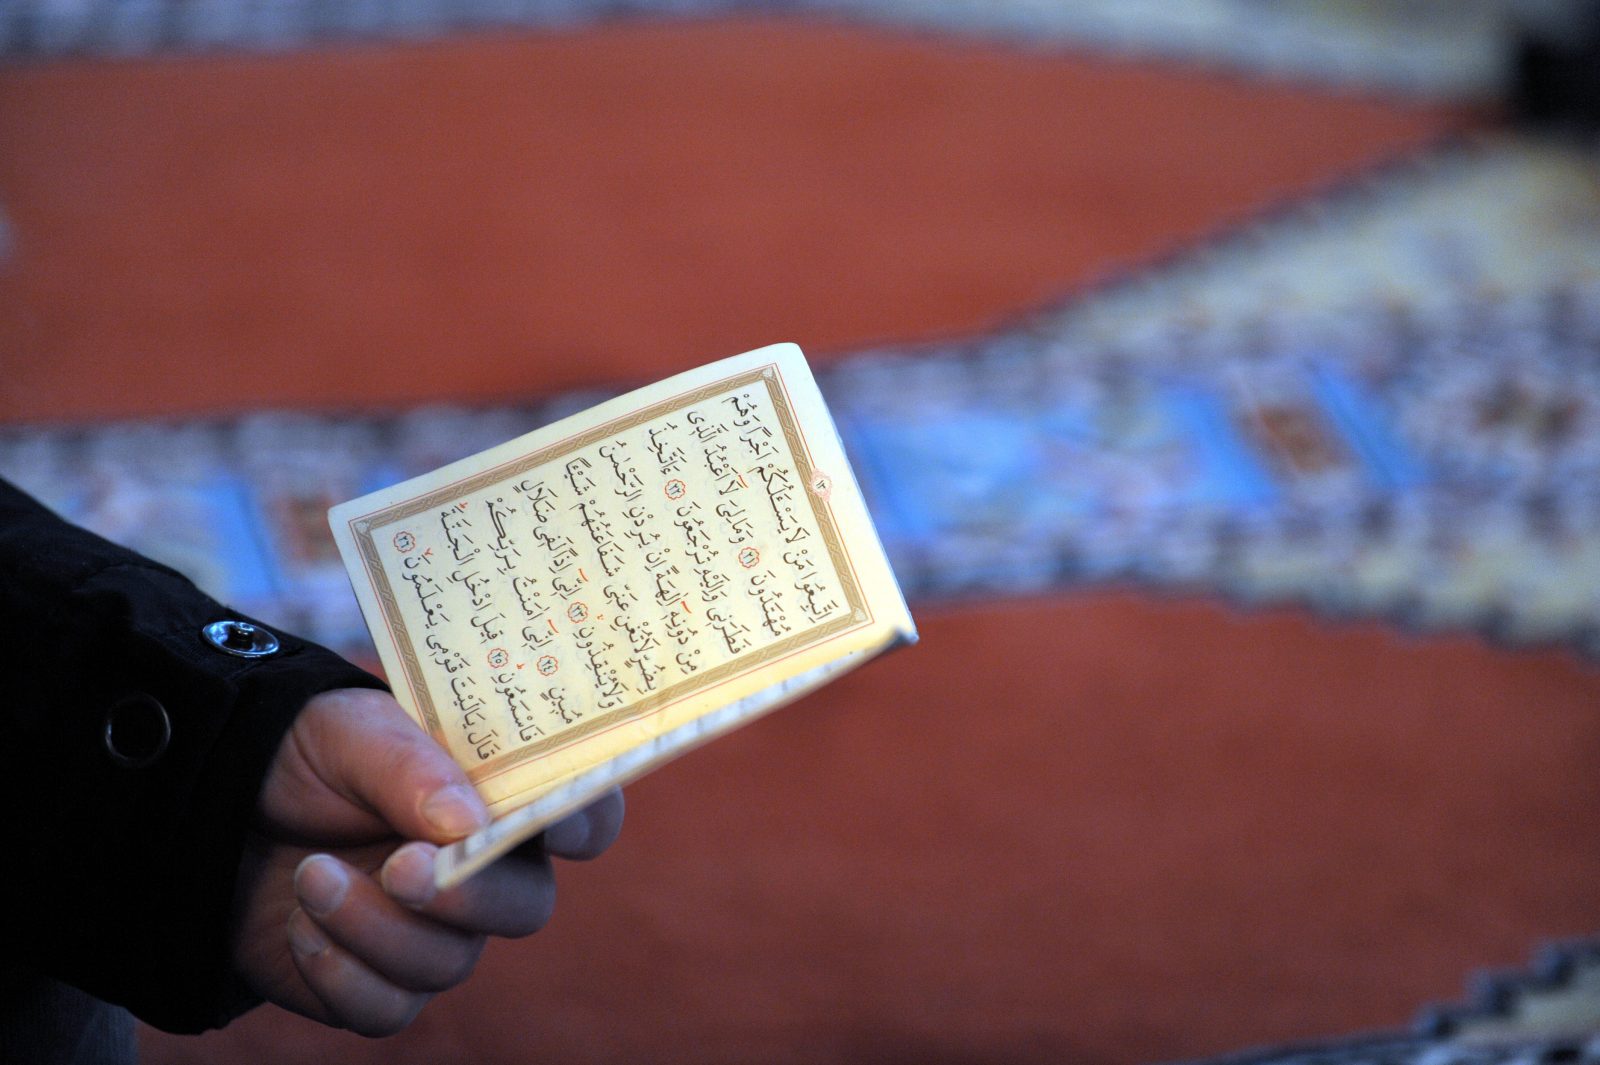 ١٣
اِتَّبِعُوا مَنْ لَا يَسْـَٔلُكُمْ اَجْرًا وَهُمْ
مُهْتَدُونَ ﴿٢١﴾ وَمَالِىَ لَٓا اَعْبُدُ الَّذِى
فَطَرَنِى وَاِلَيْهِ تُرْجَعُونَ ﴿٢٢﴾ ءَاَتَّخِذُ
مِنْ دُونِهٓ اٰلِهَةً اِنْ يُرِدْنِ الرَّحْمٰنُ
بِضُرٍّ لَا تُغْنِ عَنِّى شَفَاعَتُهُمْ شَيْـًٔا
وَلَا يُنْقِذُونِ ﴿٢٣﴾ اِنِّٓى اِذًا لَفِى ضَلَالٍ
مُبِينٍ ﴿٢٤﴾ اِنِّٓى اٰمَنْتُ بِرَبِّكُمْ
فَاسْمَعُونِ ﴿٢٥﴾ قِيلَ ادْخُلِ الْجَنَّةَ
قَالَ يَالَيْتَ قَوْمِى يَعْلَمُونَ ﴿٢٦﴾